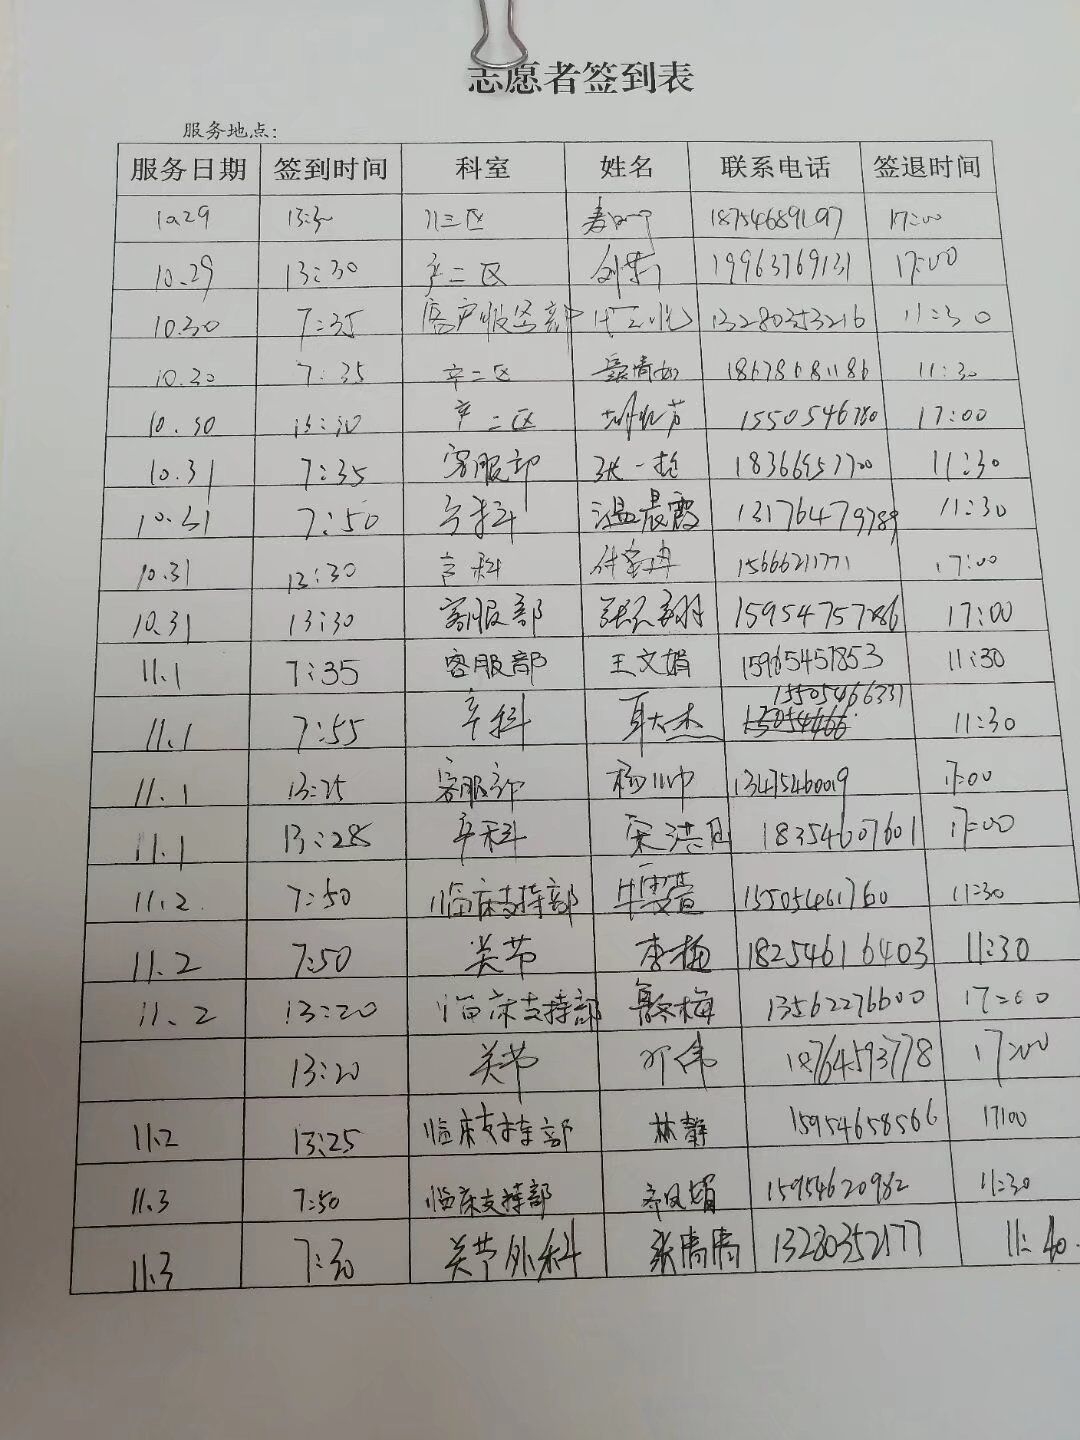 志愿者签到表
服务地点:
服务日期 签到时间 科室 姓名 联系电话 签退时间
10.29 13:30 儿三区 18754689197 17:00
10.29 13:30 产二区 19963769131 17:00
10.30 7:35 客户服务部 13280353216 11:30
10.30 7:35 产二区 18678681186 11:30
10.30 13:30 产二区 1550546780 17:00
10.31 7:35 客服部 18366957700 11:30
10.31 7:50 产科 温晨霞 13176479789 11:30
10.31 13:30 产科 15666211771 17:00
10.31 13:30 客服部 15954757286 17:00
11.1 7:35 客服部 王文娟 15965457853 11:30
11.1 7:55 产科 耿大杰 15505466331 11:30
11.1 13:25 客服部 13475460019 17:00
11.1 13:28 产科 宋洪月 18354607601 17:00
11.2 7:50 临床支持部 牛雯萱 15505461760 11:30
11.2 7:50 关节 李梅 18254616403 11:30
11.2 13:20 临床支持部 13562276600 17:00
13:20 关节 邓伟 18764593778 17:00
11.2 13:25 临床支持部 林静 15954658566 17:00
11.3 7:50 临床支持部 齐凤娟 15954620982 11:30
11.3 7:30 关节外科 张青青 13280352177 11:40.